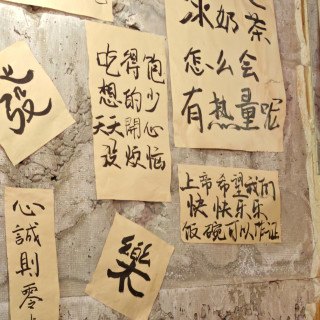 發
吃得飽
想的少
天天開心
没烦恼
冰奶茶
怎么会
有热量呢
上帝希望我们
快快乐乐
饭碗可以作证
心誠則零
樂